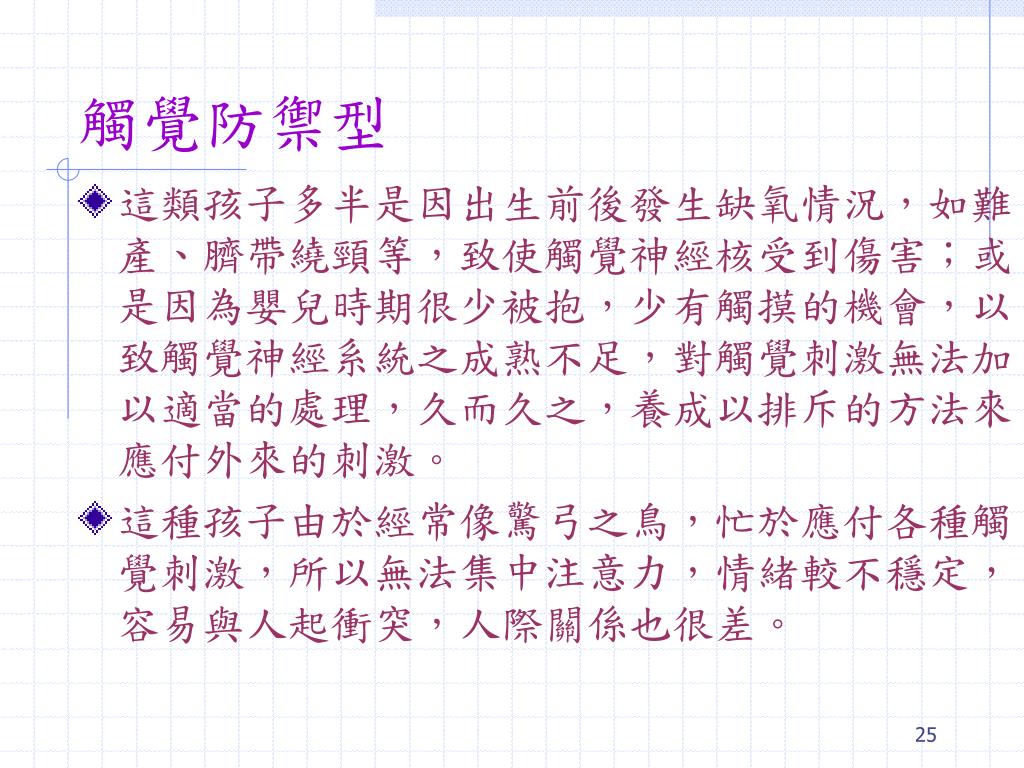 觸覺防禦型
這類孩子多半是因出生前後發生缺氧情況，如難
產、臍帶繞頸等，致使觸覺神經核受到傷害；或
是因為嬰兒時期很少被抱，少有觸摸的機會，以
致觸覺神經系統之成熟不足，對觸覺刺激無法加
以適當的處理，久而久之，養成以排斥的方法來
應付外來的刺激。
這種孩子由於經常像驚弓之鳥，忙於應付各種觸
覺刺激，所以無法集中注意力，情緒較不穩定，
容易與人起衝突，人際關係也很差。
25